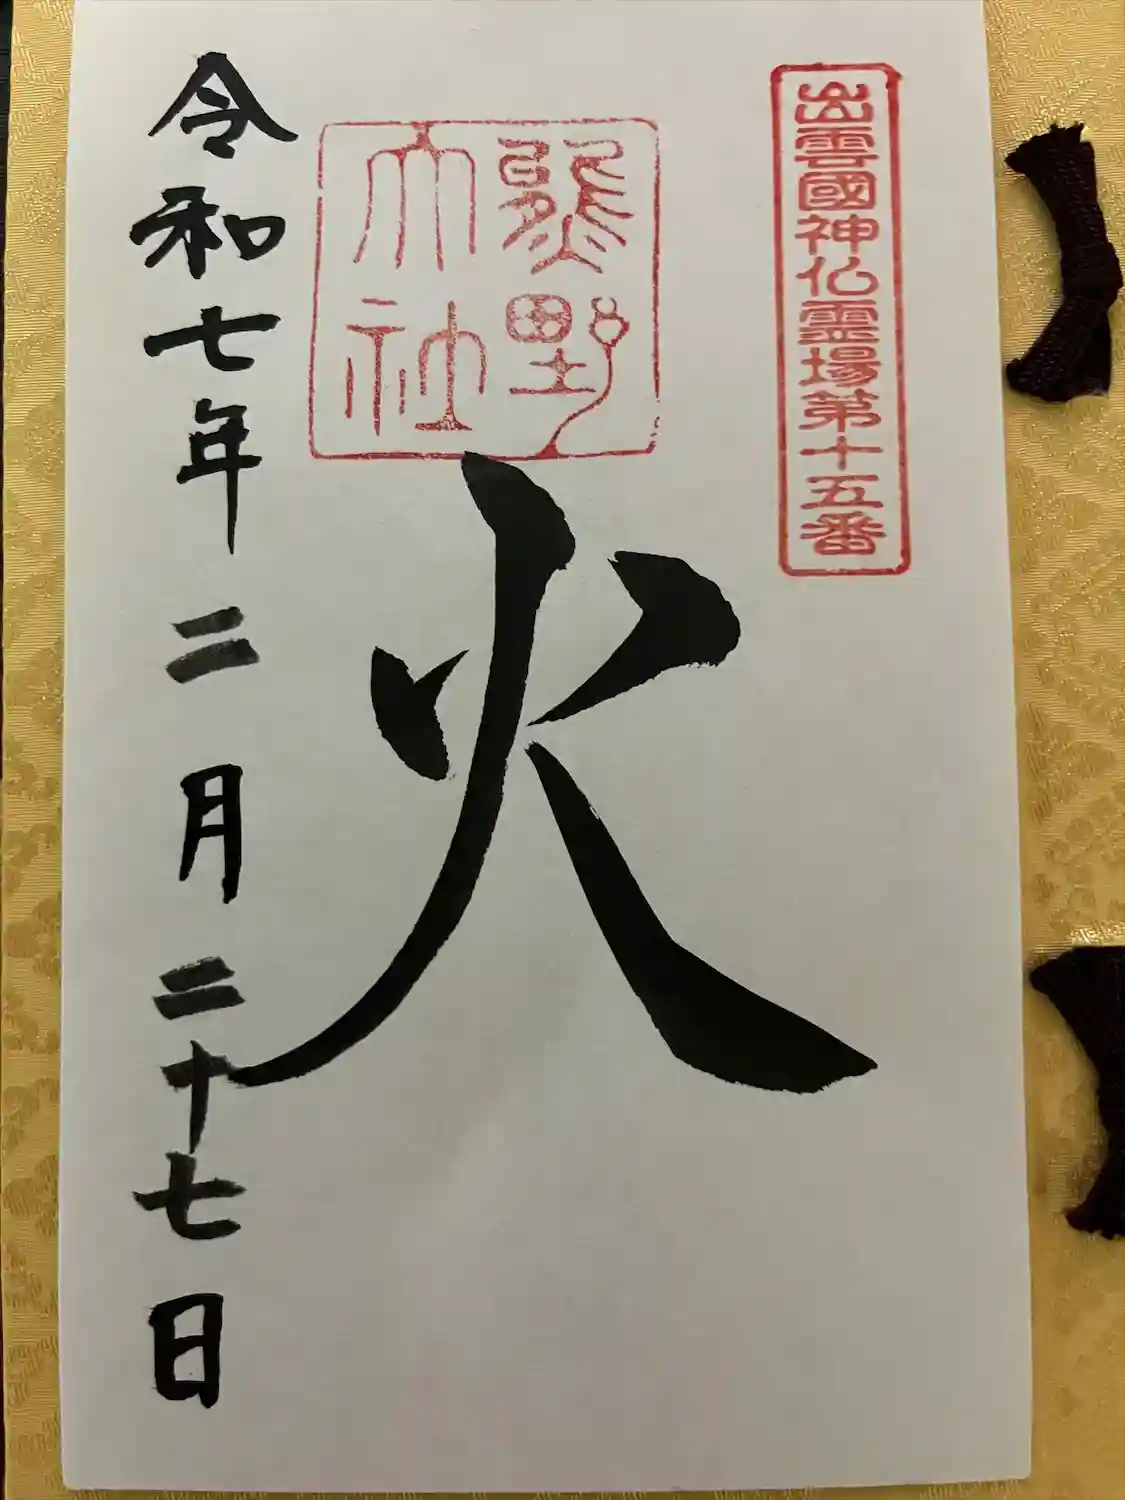 出雲國神仏霊場第十五番
熊野
大社
火
令和七年二月二十七日